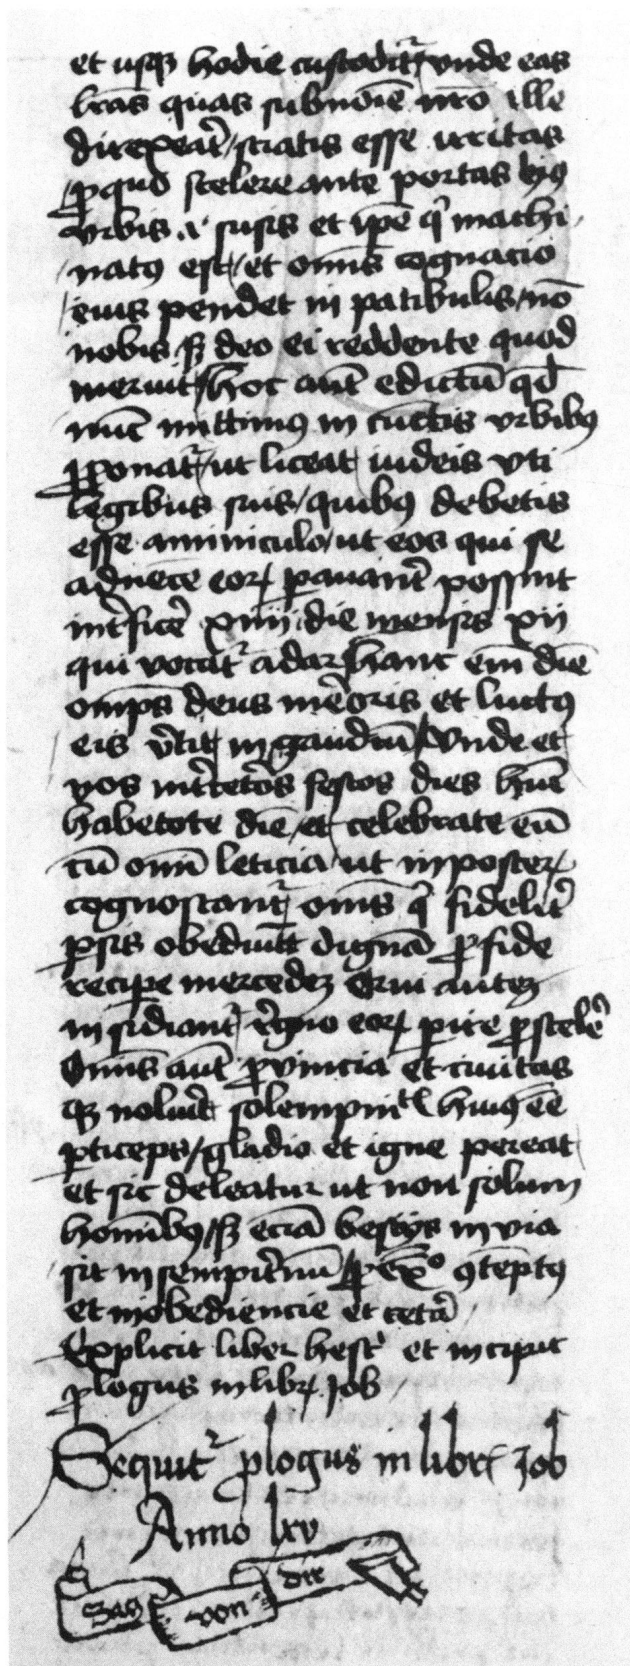 et usq₃ hodie custodit᷑ / vnde eas
l̅ras quas sub no̅ie̅ n̅ro ille
direxeat̉ / sciatis esse irritas
ꝓ quo scelere ante portas hui᷒
vrbis .i. susis et ip̅e q̉ machi
nat᷒ est / et om̅is cognacio
eius pendet in patibulis / no̅
nobis s₃ deo ei reddente quod
meruit / hoc aut̅ edictu̅ qd̅
nu̅c mittim᷒ in cu̅ctis vrbib᷒
ꝓponat᷑ / ut liceat iudeis vti
legibus suis / quib᷒ debetis
esse aminiculo / ut eos qui se
ad nece̅ eoꝝ ꝑauant̉ possint
int̉ficẻ xiiii die mensis xii
qui vocat᷑ adar / hanc em̅ die̅
om̅ps deus mẻoris et luct᷒
eis v̉tit in gaudiu̅ / Vnde et
vos int̉ cet̉os festos dies hu̅c
habetote die̅ / et celebrate eu̅
cu̅ om̅i leticia / ut in posteꝝ
cognoscant᷑ om̅s q̉ fidelit̉
ꝑsis obediu̅t digna̅ ꝓ fide
recipe mercede₃ Qui aute₃
insidiant᷑ r̉gno eoꝝ ꝑire ꝓ scelẻ
Om̅is aut̅ ꝓvincia et ciuitas
q₃ noluit̉ solempnit̅ hui᷒ e̅e̅
ꝑticeps / gladio et igne pereat
et sic deleatur ut non solum
homi̅ib᷒ / s₃ ecia̅ bestijs in via
sit in sempit̉nu̅ / ꝓ ex̅o ꝯtempt᷒
et inobediencie et cet̉a
Explicit liber hest̉ et incipit
ꝓlogus in libꝝ Job
Sequit᷑ ꝓlogus in libꝝ Job
Anno lxv
Sag von dir